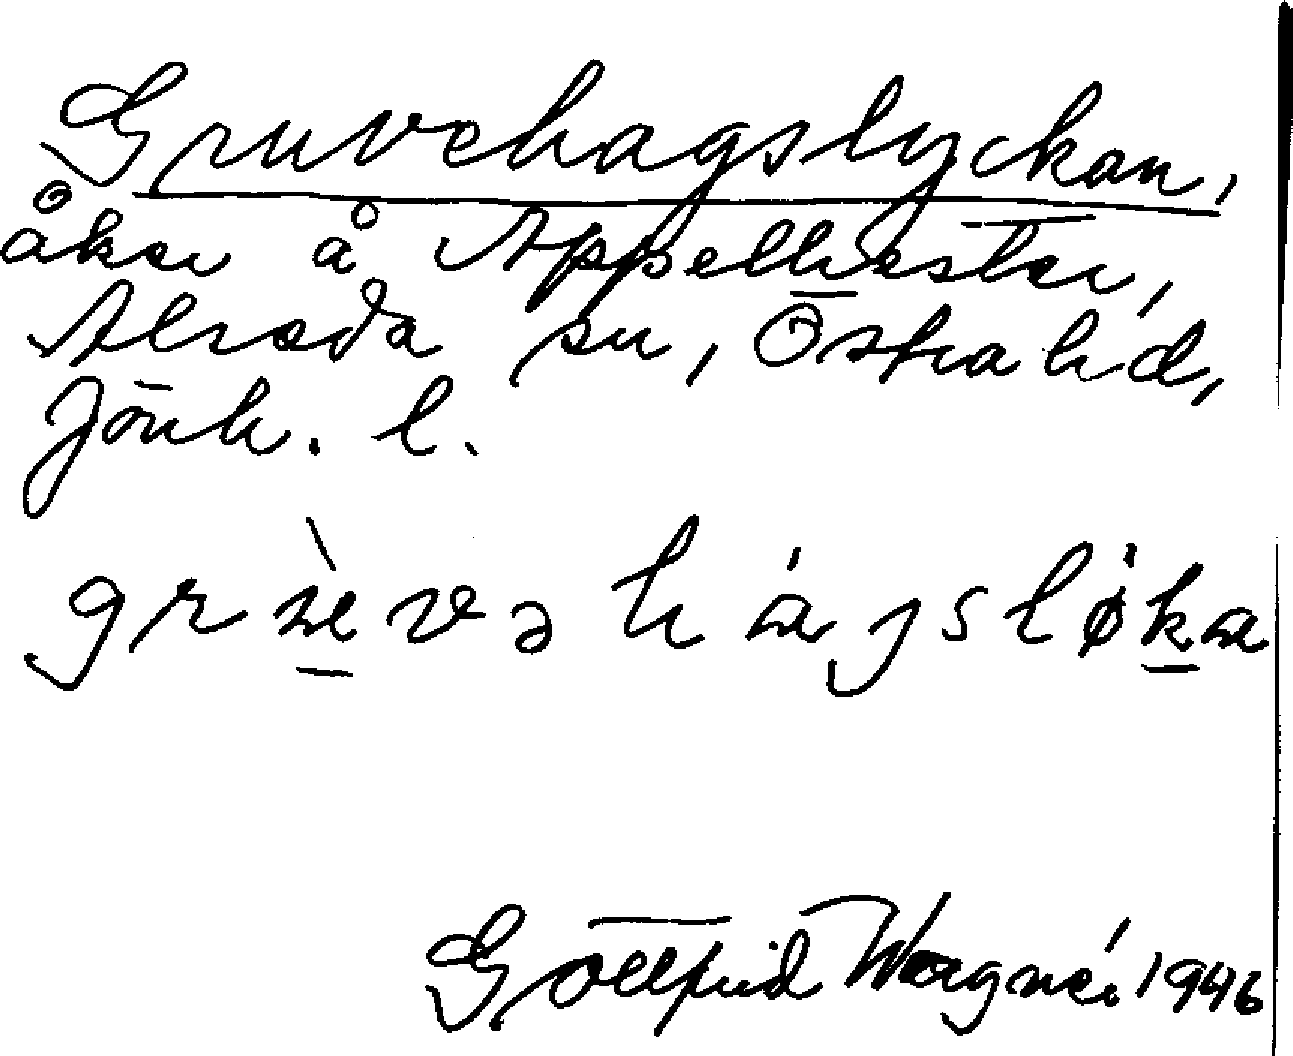 Gruvehagslyckan,
åker å Appelkester,
Alseda sn, Östra hd,
Jönk. l.
Gottfrid Wagnér 1946